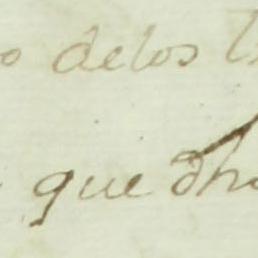 o delos
que dho